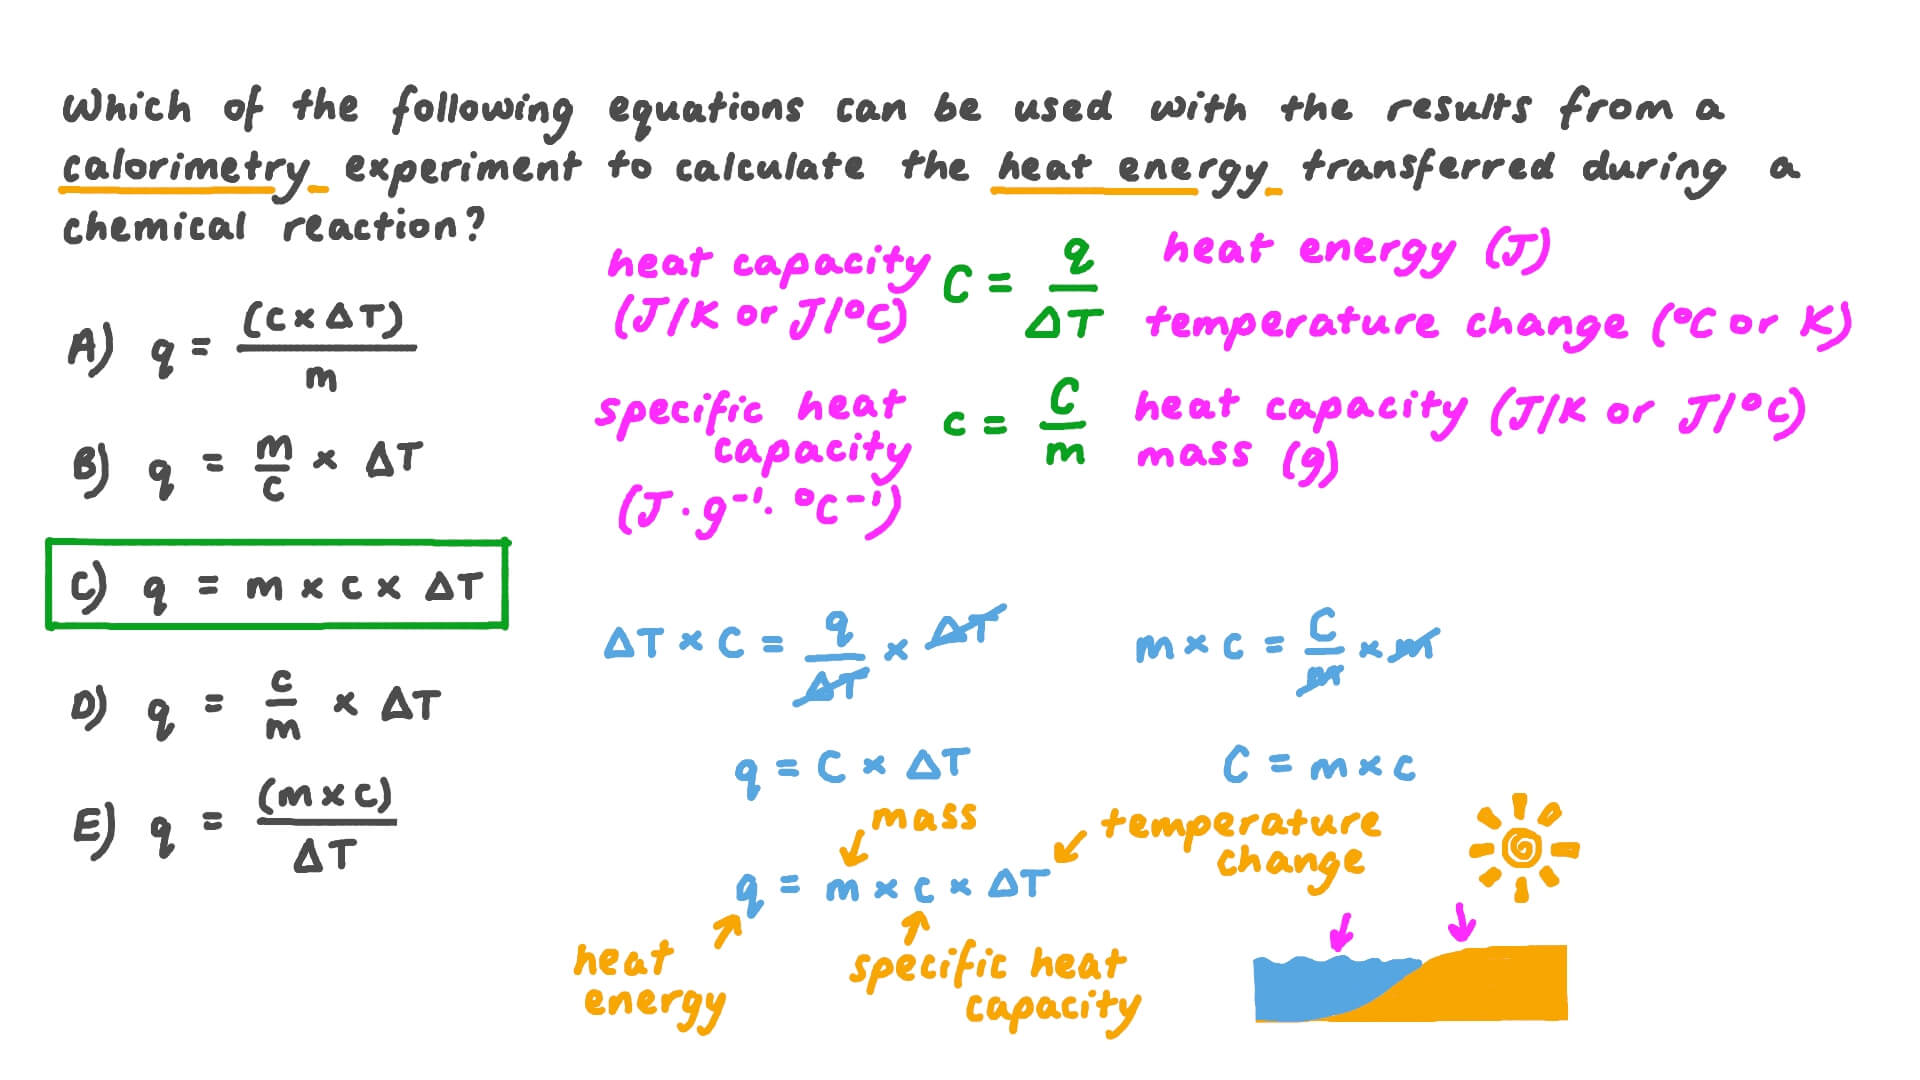 Which of the following equations can be used with the results from a
calorimetry experiment to calculate the heat energy transferred during a
chemical reaction?
A) q = (c × ΔT) / m
B) q = m/c × ΔT
C) q = m × c × ΔT
D) q = c/m × ΔT
E) q = (m × c) / ΔT
heat capacity
(J/K or J/°C)
C = q/ΔT
heat energy (J)
temperature change (°C or K)
specific heat
capacity
(J·g⁻¹·°C⁻¹)
c = C/m
heat capacity (J/K or J/°C)
mass (g)
ΔT × C = q/ΔT × ΔT
m × c = C/m × m
q = C × ΔT
C = m × c
mass
temperature
change
q = m × c × ΔT
heat
energy
specific heat
capacity